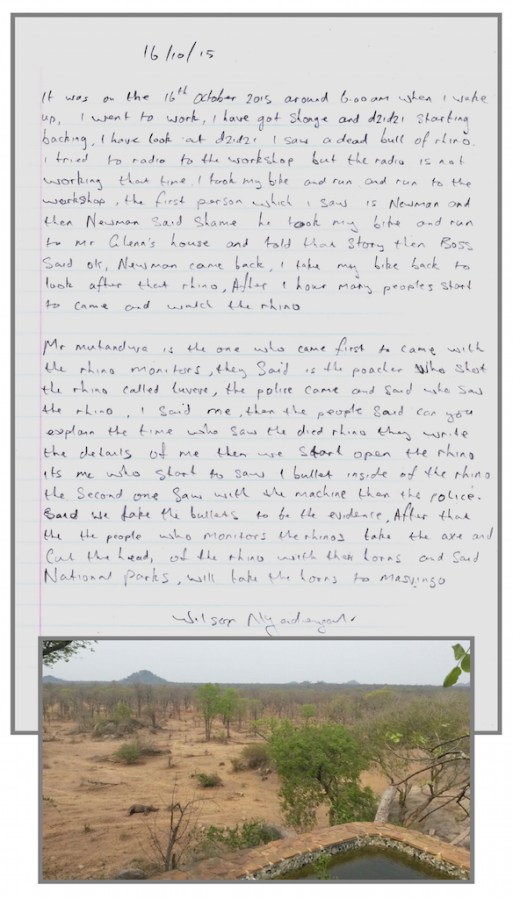 16/10/15
It was on the 16th October 2015 around 6:00am when I wake
up, I went to work, I have got Shonge and dzidzi starting
backing, I have look at dzidzi I saw a dead bull of rhino.
I tried to radio to the workshop but the radio is not
working that time. I took my bike and run and run to the
workshop, the first person which I saw is Newman and
then Newman said Shame he took my bike and run
to Mr Glenn's house and told that story then Boss
Said ok, Newman came back, I take my bike back to
look after that rhino, After 1 hour many peoples start
to came and watch the rhino
Mr Mutanduva is the one who came first to came with
the rhino monitors, they said is the poacher who shot
the rhino called Luvere, the police came and said who saw
the rhino, I said me, then the people said can you
explain the time who saw the died rhino they write
the details of me then we start open the rhino
its me who start to saw 1 bullet inside of the rhino
the second one saw with the machine then the police.
Said we take the bullets to be the evidence, After that
the the people who monitors the rhinos take the axe and
Cut the head, of the rhino with their horns and said
National Parks, will take the horns to masvingo
Wilson